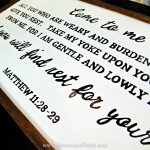 Come to me
ALL YOU WHO ARE WEARY AND BURDEN
GIVE YOU REST. TAKE MY YOKE UPON YOU
FROM ME, FOR I AM GENTLE AND LOWLY I
you will find rest for your
MATTHEW 11:28-29